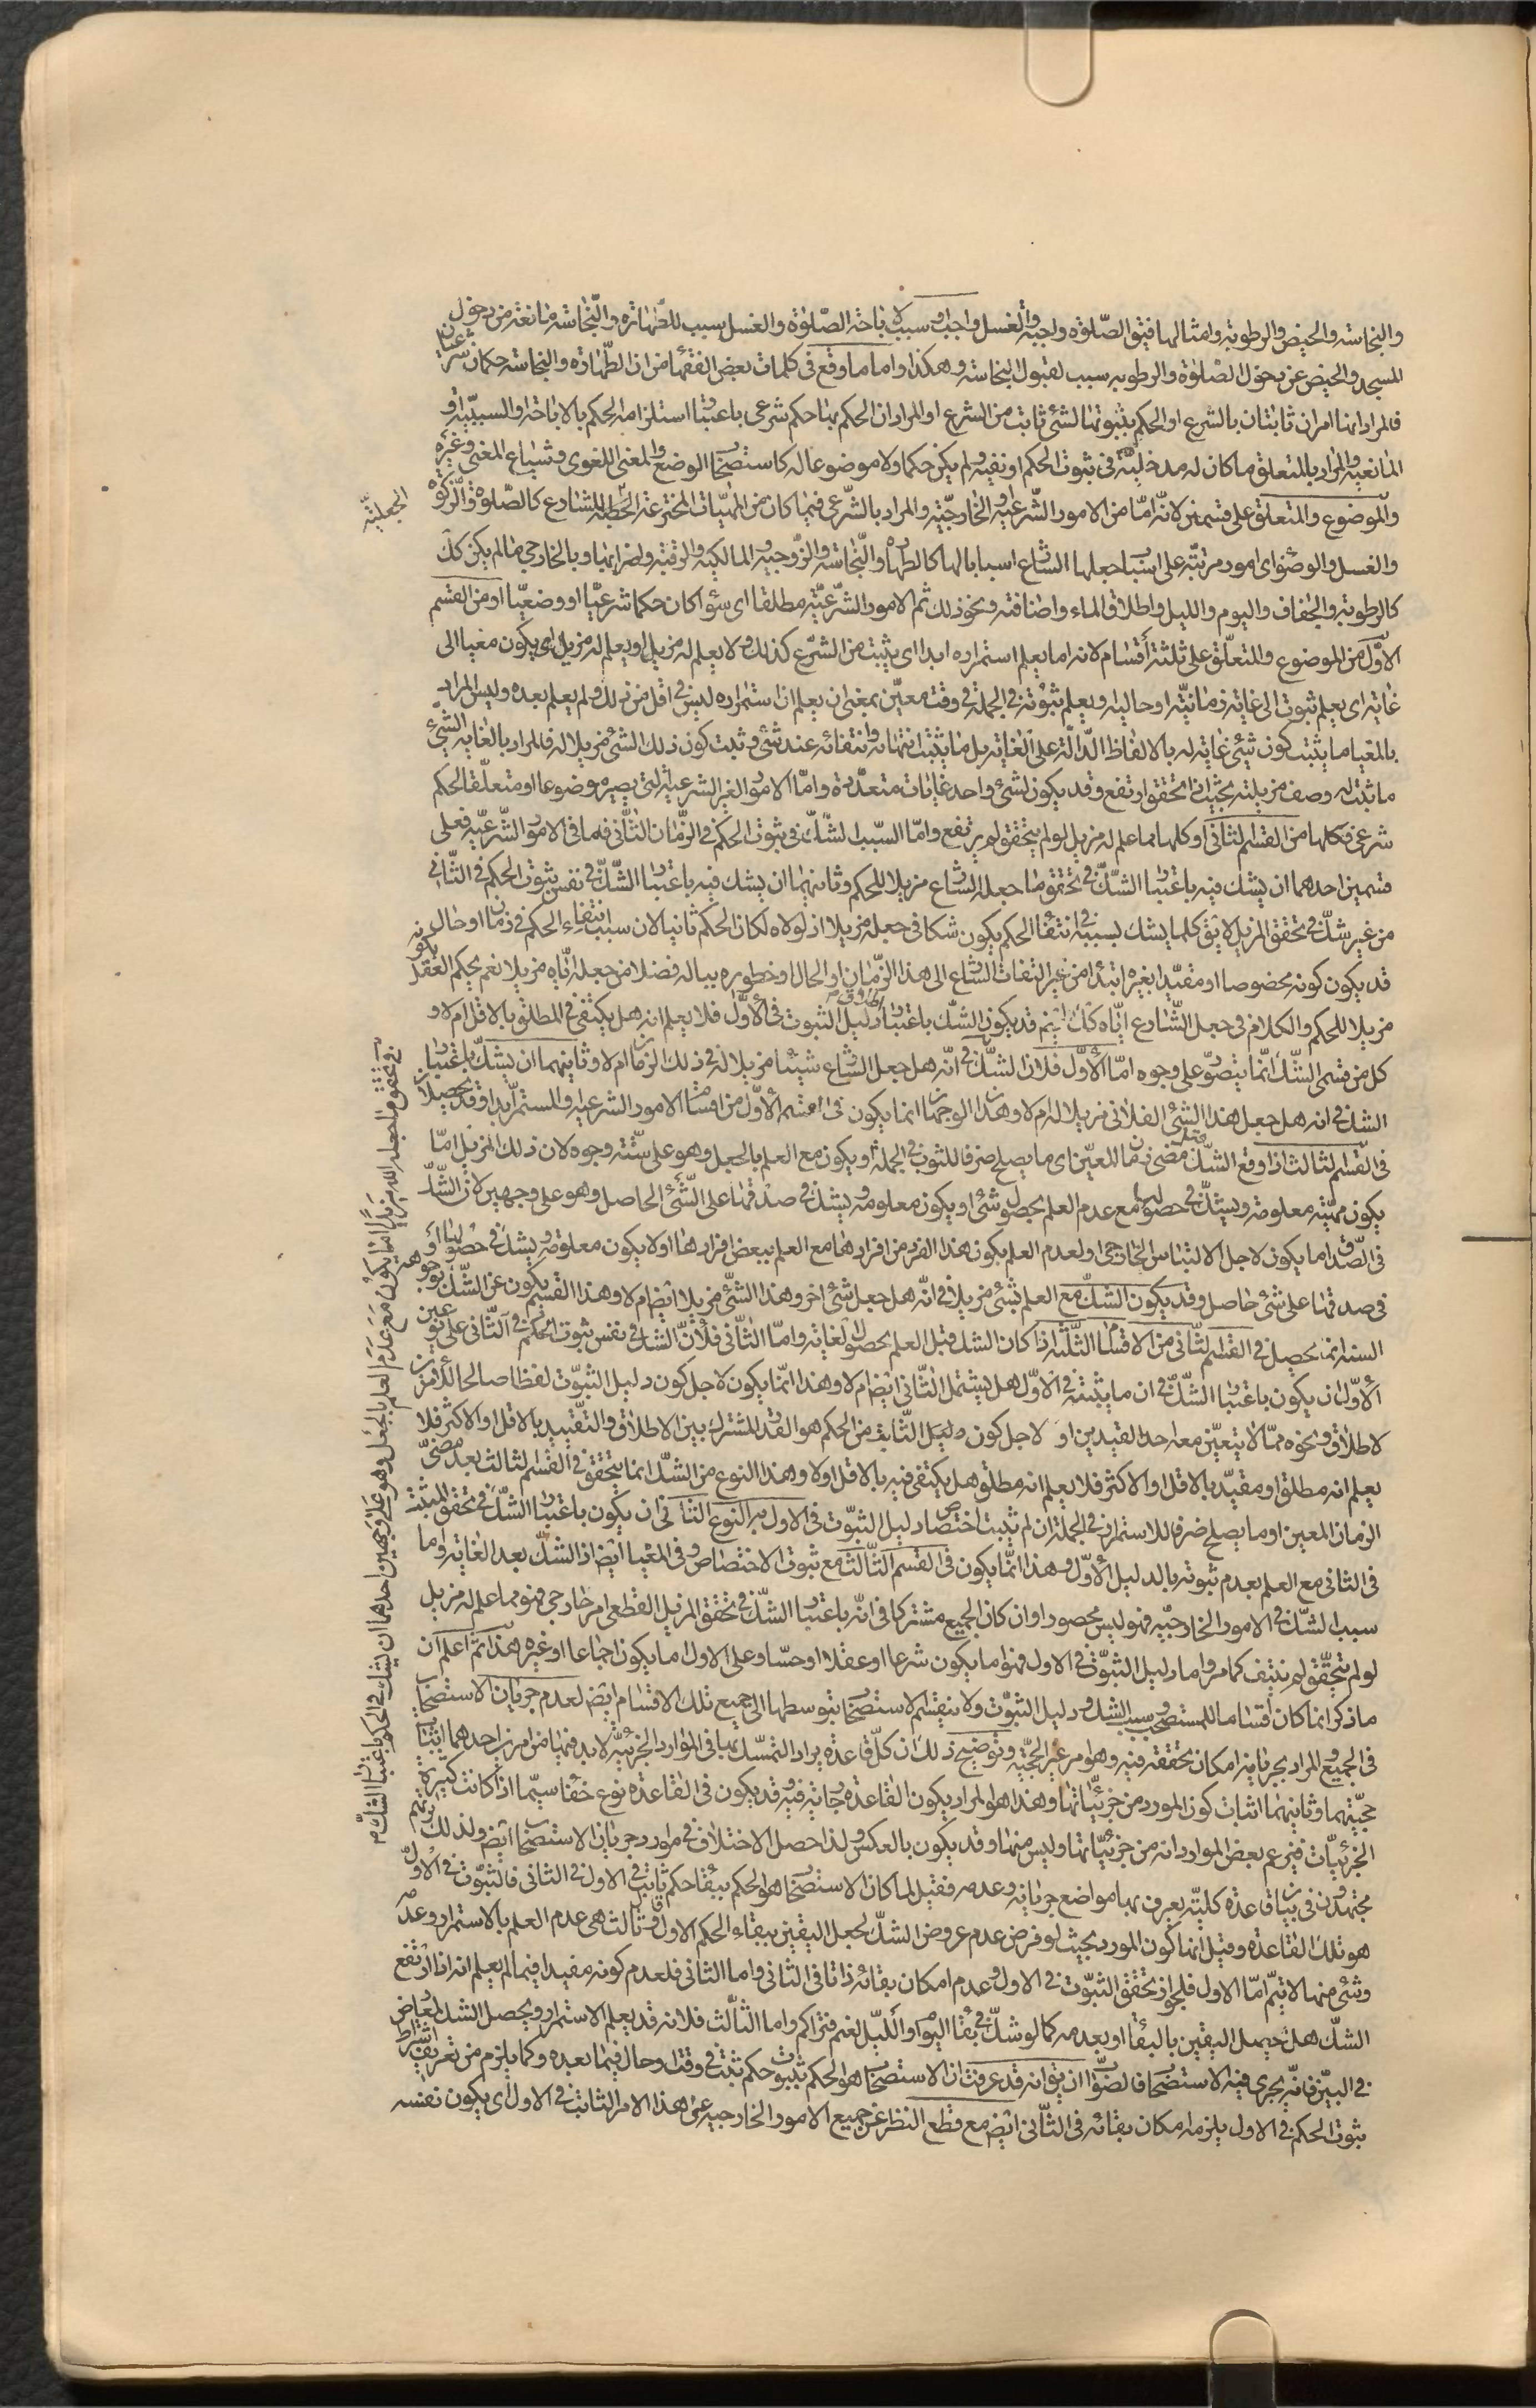 والنجاسة والحيض والرطوبة وامثالها فيق الصلوة واجبة والغسل واجب او سبب لاباحة الصلوة والغسل سبب للطهارة والنجاسة مانعة من دخول
المسجد والحيض عن دخول الصلوة والرطوبة سبب لقبول النجاسة وهكذا واما ما وقع فى كلمات بعض الفقهاء من ان الطهارة والنجاسة حكمان شرعيان
فالمراد انهما امران ثابتان بالشرع او الحكم بثبوتهما لشئ ثابت من الشرع او المراد ان الحكم بهما حكم شرعى باعتبار استلزامه الحكم بالاباحة والسببية او
المانعية والمراد بالمتعلق ما كان له مدخلية فى ثبوت الحكم او نفيه ولم يكن حكما ولا موضوعا له كاستصحاب الوضع والمعنى اللغوى وشياع المعنى وغيره
والموضوع والمتعلق على قسمين لانه اما من الامور الشرعية او الخارجية والمراد بالشرعى فيهما كان من المهيات المخترعة للشارع كالصلوة والزكوة
الجعلية
والغسل والوضوء اى امور مرتبة على اسباب جعلها الشارع اسبابا لها كالطهارة والنجاسة والزوجية والمالكية والرقية واضرابها وبالخارجى ما لم يكن كك
كالرطوبة والجفاف واليوم والليل واطلاق الماء واضافته ونحو ذلك ثم الامور الشرعية مطلقا اى سواء كان حكما شرعيا او وضعيا او من القسم
الاول من الموضوع والمتعلق على ثلثة اقسام لانه اما يعلم استمراره ابدا اى يثبت من الشرع كذلك ولا يعلم له مزيل او يعلم له مزيل اى يكون مغيا الى
غاية اى يعلم ثبوته الى غاية زمانية او حالية او يعلم ثبوته فى الجملة فى وقت معين بمعنى ان يعلم ان استمراره ليس فى اقل من ذلك ولم يعلم بعده وليس المراد
بالمغيا ما يثبت كون شئ غاية له بالالفاظ الدالة على الغاية بل ما يثبت انتهائه وانتفائه عند شئ وثبت كون ذلك الشئ مزيلا له فالمراد بالغاية الشئ
ما ثبت له وصف مزيلته بحيث اذا تحقق ارتفع وقد يكون لشئ واحد غايات متعددة واما الامور الغير الشرعية التى يصير موضوعا او متعلقا لحكم
شرعى فكلها من القسم الثانى او كلها مما علم له مزيل لو لم يتحقق لم يرتفع واما السبب لشك فى ثبوت الحكم فى الزمان الثانى فهما فى الامور الشرعية فعلى
قسمين احدهما ان يشك فيه باعتبار الشك فى تحقق ما جعله الشارع مزيلا للحكم وثانيهما ان يشك فيه باعتبار الشك فى نفس ثبوت الحكم فى الثانى
من غير شك فى تحقق المزيل لا يق كلما يشك بسببه فى انتفاء الحكم يكون شكا فى جعله مزيلا اذ لولاه لكان الحكم ثانيا لان سبب انتفاء الحكم فى زمان او حال
قد يكون كونه مخصوصا او مقيدا بغيره ابتداء من غير التفات الشارع الى هذا الزمان او الحال او خطوره بباله فضلا من جعله اياه مزيلا نعم يحكم العقل بكونه
مزيلا للحكم والكلام فى جعل الشارع اياه كك ثم قد يكون الشك باعتبار اطلاق دليل الثبوت فى الاول فلا يعلم انه هل يكتفى فى المطلق بالاقل ام لا و
كل من قسمى الشك انما يتصور على وجوه اما الاول فلان الشك فى انه هل جعل الشارع شيئا مزيلا له فى ذلك الزمان ام لا وثانيهما ان يشك باعتبار
الشك فى انه هل جعل هذا الشئ الفلانى مزيلا له ام لا وهذان الوجهان انما يكون فى القسم الاول من اقسام الامور الشرعية والمستمر ابدا وقد يحصلان
فى القسم الثالث اذا وقع الشك بعد مضى زمان المعين اى ما يصلح صرفا للثبوت فى الجملة او يكون مع العلم بالجعل وهو على ستة وجوه لان ذلك المزيل اما
يكون مهيته معلومة ويشك فى حصوله مع عدم العلم بحصول شئ او يكون معلومة ويشك فى صدقها على الشئ الحاصل وهو على وجهين لان الشك
فى الصدق اما يكون لاجل الالتباس الخارجى او لعدم العلم بكون هذا الفرد من افرادها مع العلم ببعض افرادها او لا يكون معلومة ويشك فى حصولها او
فى صدقها على شئ حاصل وقد يكون الشك مع العلم بشئ مزيلا فى انه هل جعل شئ اخر وهذا الشئ مزيلا ايضا ام لا وهذا القسم يكون عن الشك بوجوهه
الستة انما يحصل فى القسم الثانى من الاقسام الثلثة اذا كان الشك قبل العلم بحصول الغاية واما الثانى فلان الشك فى نفس ثبوت الحكم فى الثانى على نوعين
الاول ان يكون باعتبار الشك فى ان ما يثبته فى الاول هل يشتمل الثانى ايضا ام لا وهذا انما يكون لاجل كون دليل الثبوت لفظا صالحا لامرين
لاطلاق ونحوه مما لا يتعين معه احد القيدين او لاجل كون دليل الثابت من الحكم هو القدر المشترك بين الاطلاق والتقييد بالاقل او الاكثر فلا
يعلم انه مطلق او مقيد بالاقل او الاكثر فلا يعلم انه مطلق هل يكتفى فيه بالاقل او لا وهذا النوع من الشك انما يتحقق فى القسم الثالث بعد مضى
الزمان المعين او ما يصلح صرفا للاستمرار فى الجملة ان لم يثبت اختصاص دليل الثبوت فى الاول به النوع الثانى ان يكون باعتبار الشك فى تحقق المثبت
فى الثانى مع العلم بعدم ثبوته بالدليل الاول وهذا انما يكون فى القسم الثالث مع ثبوت الاختصاص وفى المغيا ايضا اذا الشك بعد الغاية واما
سبب الشك فى الامور الخارجية فهو ليس محصورا وان كان الجميع مشتركا فى انه باعتبار الشك فى تحقق المزيل القطعى امر خارجى فهو مما علم له مزيل
لو لم يتحقق لم ينتف كما مر واما دليل الثبوت فى الاول فهو اما يكون شرعا او عقلا او حسا وعلى الاول اما يكون اجماعا او غيره هذا ثم اعلم ان
ما ذكر انما كان اقساما للمستصحب وسبب الشك ودليل الثبوت ولا ينقسم الاستصحاب بتوسطها الى جميع تلك الاقسام ايضا لعدم جريان الاستصحاب
فى الجميع والمراد بجريانه امكان تحققه فيه وهو امر غير الحجية وتوضيح ذلك ان كل قاعدة يراد التمسك بها فى الموارد الجزئية لابد فيها من امرين احدهما اثبات
حجيتها وثانيهما اثبات كون المورد من جزئياتها وهذا هو المراد بكون القاعدة جارية فيه وقد يكون فى القاعدة نوع خفاء سيما اذا كانت كثيرة
الجزئيات فيزعم بعض الموارد انه من جزئياتها وليس منها وقد يكون بالعكس ولذا حصل الاختلاف فى موارد جريان الاستصحاب ايضا ولذلك تريهم
مجتهدون فى بيان قاعدة كلية يعرف بها مواضع جريانه وعدمه فقيل لما كان الاستصحاب هو الحكم ببقاء حكم ثابت فى الاول فى الثانى فالثبوت فى الاول
هو تلك القاعدة وقيل انها كون المورد بحيث لو فرض عدم عروض الشك لحصل اليقين ببقاء الحكم الاول وثالث هى عدم العلم بالاستمرار وعدمه
وشئ منها لا يتم اما الاول فلجواز تحقق الثبوت فى الاول وعدم امكان بقائه ذاتا فى الثانى واما الثانى فلعدم كونه مفيدا فيما لم يعلم انه اذا ارتفع
الشك هل يحصل اليقين بالبقاء او بعدمه كما لو شك فى بقاء اليوم او الليل لغيم متراكم واما الثالث فلانه قد يعلم الاستمرار ويحصل الشك لمعارض
فى البين فانه يجرى فيه الاستصحاب فالصواب ان يق انه قد عرفت ان الاستصحاب هو الحكم بثبوت حكم ثبت فى وقت او حال فيما بعده وكما يلزم من تعريفه اشتراط
ثبوت الحكم فى الاول يلزمه امكان بقائه فى الثانى ايضا مع قطع النظر عن جميع الامور الخارجية عن هذا الامر الثابت فى الاول اى يكون نفسه
فى تحقق ما جعله الله مزيلا انما يكون مع عدم العلم بالجعل وهو على وجهين احدهما ان يشك فى الحكم باعتبار الشك م